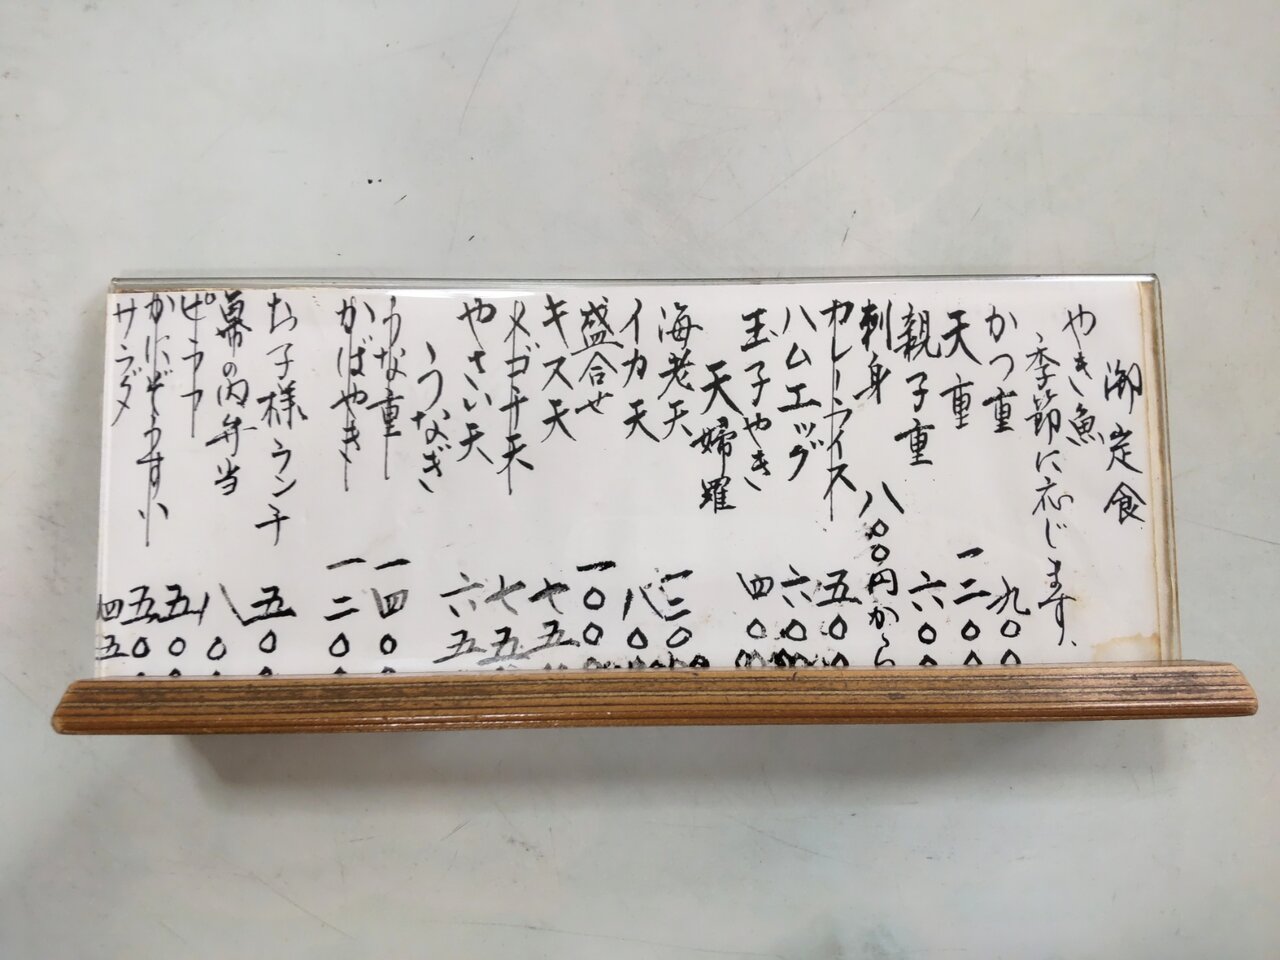 御定食
やき魚
季節に応じます、
かつ重 九〇〇
天重 一二〇〇
親子重 六〇〇
刺身 八〇〇円から
カレーライス 五〇〇
ハムエッグ 六〇〇
玉子やき 四〇〇
天婦羅
海老天 一二〇〇
イカ天 八〇〇
盛合せ 一〇〇〇
キス天 七五〇
メゴチ天 七五〇
やさい天 六五〇
うなぎ
うな重 一四〇〇
かばやき 一二〇〇
お子様ランチ 五〇〇
幕の内弁当 八〇〇
ピラフ 五〇〇
かにぞうすい 五〇〇
サラダ 四五〇